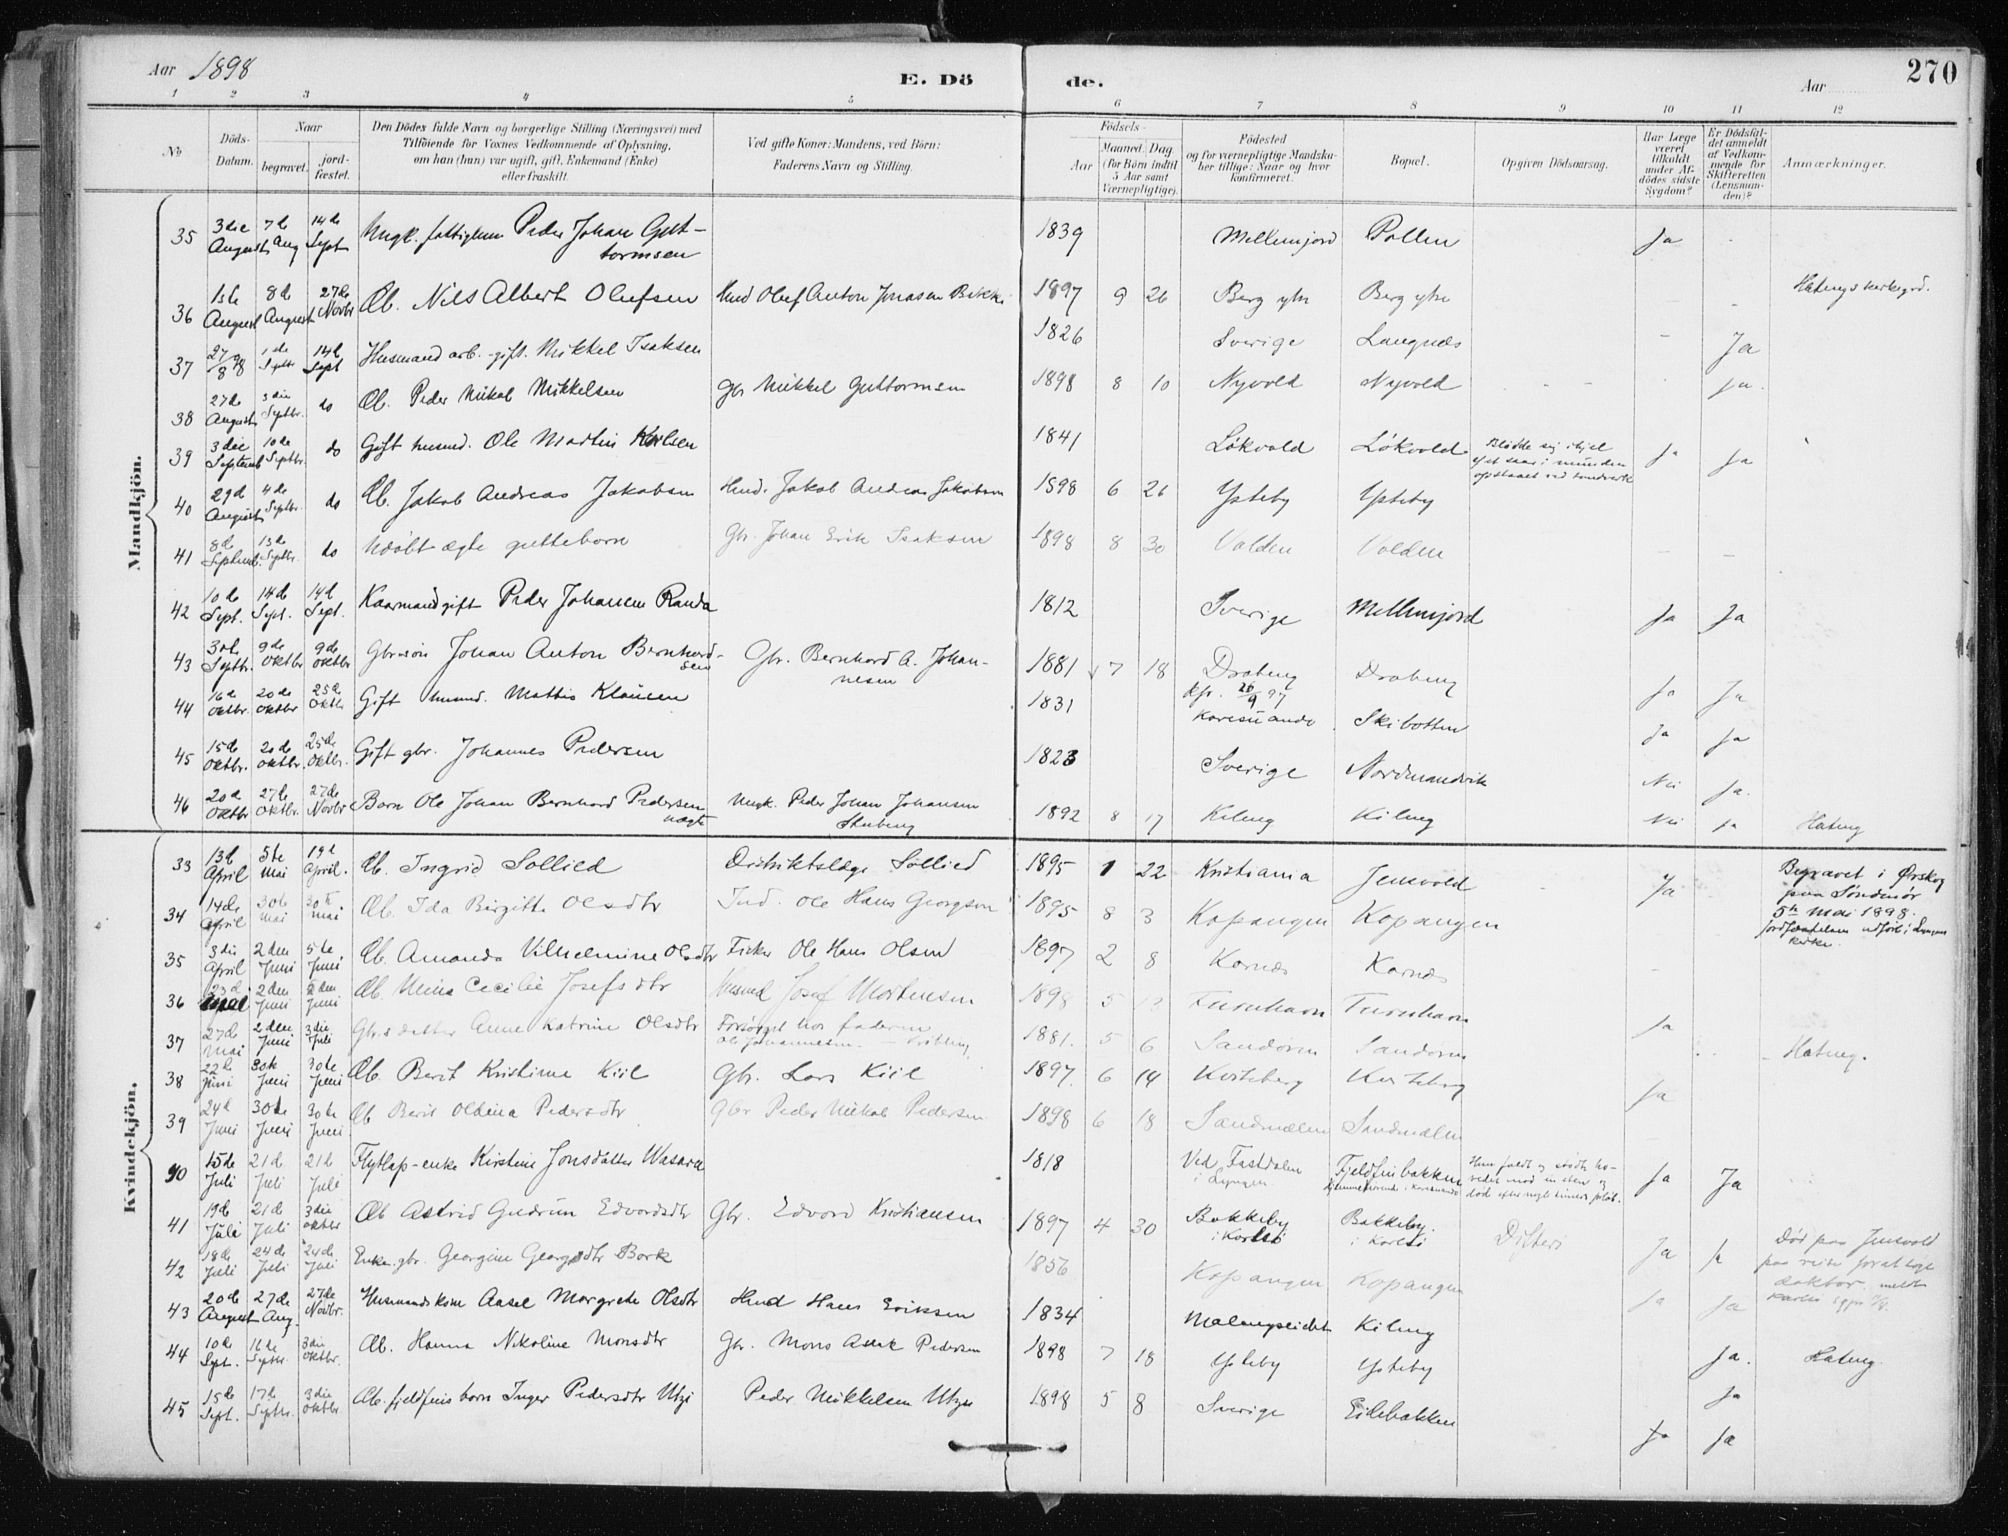 Aar 1898 E. Dö de. Aar 270
1 2 3 3 4 5 6 7 8 9 10 11 12
No
Döds-Datum.
Naar
begravet.
jord-fæstet.
Den Dödes fulde Navn og borgerlige Stilling (Næringsvei) med
Tilföiende for Voxnes Vedkommende af Oplysning,
om han (hun) var ugift, gift, Enkemand (Enke)
eller fraskilt.
Ved gifte Koner: Mandens, ved Börn:
Faderens Navn og Stilling.
Födsels-
Aar
Maaned. Dag
(for Börn indtil
5 Aar samt
Værnepligtige).
Födested
og for værnepligtige Mandska-
ber tillige: Naar og hvor
konfirmeret.
Bopæl.
Opgiven Dödsaarsag.
Har Læge
været
tilkaldt
under Af-
dödes sidste
Sygdom?
Er Dödsfal-
det anmeldt
af Vedkom-
mende for
Skifteretten
(Lensman-
den)?
Anmærkninger.
Mandkjön.
35 3die August 7de Aug 14de Sept Ungk. fattiglem Peder Johan Gut-
tormsen 1839 Mellemjord Pollen Ja
36 1ste August 8de August 27de Novbr Æb. Nils Albert Olufsen Husd Oluf Anton Jonasen 1897 9 26 Berg ytre Berg ytre
37 27/8 98 1ste Septr 14de Sept Husmand arb. gift. Mikkel Isaksen 1826 Sverige Langnæs - Ja
38 27de August 3die Septbr. do Æb. Peder Mikal Mikkelsen Gbr Mikkel Guttormsen 1898 8 10 Nyvold Nyvold ja.
39 3die Septemb 10de Septbr. do Gift husmd. Ole Martin Karlsen 1841 Løkvold Løkvold Blødde sig ihjel
Ja Ja
40 29d August 4de Septbr. do Æb. Jakob Andreas Jakobsen Husd. Jakob Andreas Jakobsen 1898 6 26 Ysteby Ysteby
41 8de Septemb. 13de Septbr. do Udøbt ægte guttebarn Gbr. Johan Erik Isaksen 1898 8 30 Volden Volden - -
42 10de Sept. 14de Sept. 14d Sept. Kaarmand gift Peder Johansen Randa 1812 Sverige Mellemjord Ja Ja
43 30te Septbr 9de Oktbr 9de Oktbr Gbr.søn Johan Anton Bernhard-
sen Gbr. Bernhard A. Johan-
nesen 1881 7 18 Draberg
26/9 97 Draberg Ja Ja
44 16de Oktbr. 20de Oktbr 25de Oktbr Gift husmd. Mattis Klausen 1831 Karesuando Skibotten Ja Ja
45 15de Oktbr. 20de Oktbr. 25de Oktbr. Gift gbr. Johannes Pedersen 1823 Sverige Nordmandvik Nei Ja.
46 20d Oktbr 27de Oktbr. 27de Novbr Barn Ole Johan Bernhard Pedersen
uægte Ungk. Peder Johan Johansen
1892 8 17 Kileng Kileng Nei ja Hateng
Kvindekjön.
33 13de April 5te Mai 19d April. Æb. Ingrid Sollied Distriktslæge Sollied 1895 1 22 Kristiania Jensvold Ja Begravet i Ørskog
paa Søndmør
5te Mai 1898.
34 14de April 30te Mai 30te Mai Æb. Ida Birgitte Olsdtr Ind. Ole Hans Georgsen 1895 8 3 Kopangen Kopangen
35 3die April 2den Juni 5te Juni Æb. Amanda Vilhelmine Olsdtr Fisker Ole Hans Olsen 1897 2 8 Kornæs Kornæs -
36 23d Mai 2den Juni 2den Juni Æb. Mina Cecilie Josefsdtr Husmd Josef Mortensen 1898 5 Furuhavn
Ja
37 27de Mai 2den Juni 3die Juli Gbrs datter Anne Katrine Olsdtr Forsørget hos faderen
Ole Johannessen 1881. 5 6 Sandøren Sandøren Hateng.
38 22de Juni 30te Juni 30te Juni Æb. Berit Kristine Kiil Gbr. Lars Kiil 1897. 6 14 Kviteberg Kviteberg Ja
39 24d Juni 30te Juni 30te Juni Æb Berit Oldina Pedersdtr Gbr Peder Mikal Pedersen 1898 6 18 Sandmælen Sandmælen
40 15de Juli 21d Juli 21d Juli Flytlap-enke Kirstine Jonsdatter Wasara 1818 Ved Fastdalen
i Lyngen Fjeldfinbakken
Hun faldt og stødte ho-
vedet mod en sten og
Ja Ja
41 19de Juli 21de Juli 3die Oktbr Æb Astrid Gudrun Edvardsdtr Gbr. Edvard Kristiansen 1897 4 30 Bakkeby
i Karlsø Bakkeby.
i Karlsø Difteri Ja ja Død paa Jensvold
paa reise
doktor.
42 18de Juli 24de Juli 24de Juli Enke. gbr. Georgine Georgsdtr Bork 1856 Kopangen Kopangen Ja Ja
43 20de August 27de Aug. 27de Novbr. Husmandskone Aasel Margrete Olsdtr Husd Hans Eriksen 1834 Malangseidet Kileng Ja. Hateng.
44 10de Sept. 16de Septbr. 3die Oktbr. Æb. Hanna Nikoline Monsdtr Gbr. Mons Aslak Pedersen 1898 7 18 Ysteby Ysteby Ja
45 15de Sept. 17de Septbr. 3die Oktbr Æb. fjeldfins barn Inger Pedersdtr Utzi Peder Mikkelsen Utzi 1898 5 8 Sverige Eidebakken Ja Ja